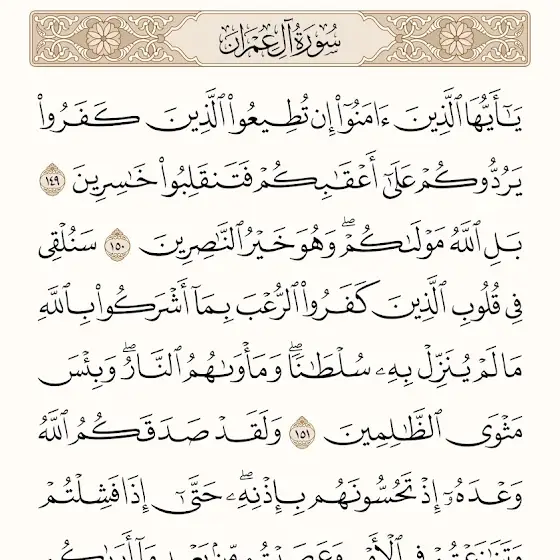 سُورَةُ آلِ عِمْرَانَ
يَـٰٓأَيُّهَا ٱلَّذِينَ ءَامَنُوٓا۟ إِن تُطِيعُوا۟ ٱلَّذِينَ كَفَرُوا۟
يَرُدُّوكُمْ عَلَىٰٓ أَعْقَـٰبِكُمْ فَتَنقَلِبُوا۟ خَـٰسِرِينَ ١٤٩
بَلِ ٱللَّهُ مَوْلَىٰكُمْ ۖ وَهُوَ خَيْرُ ٱلنَّـٰصِرِينَ ١٥٠ سَنُلْقِى
فِى قُلُوبِ ٱلَّذِينَ كَفَرُوا۟ ٱلرُّعْبَ بِمَآ أَشْرَكُوا۟ بِٱللَّهِ
مَا لَمْ يُنَزِّلْ بِهِۦ سُلْطَـٰنًا ۖ وَمَأْوَىٰهُمُ ٱلنَّارُ ۖ وَبِئْسَ
مَثْوَى ٱلظَّـٰلِمِينَ ١٥١ وَلَقَدْ صَدَقَكُمُ ٱللَّهُ
وَعْدَهُۥٓ إِذْ تَحُسُّونَهُم بِإِذْنِهِۦ ۖ حَتَّىٰٓ إِذَا فَشِلْتُمْ
وَتَنَـٰزَعْتُمْ فِى ٱلْأَمْرِ وَعَصَيْتُم مِّنۢ بَعْدِ مَآ أَرَىٰكُم